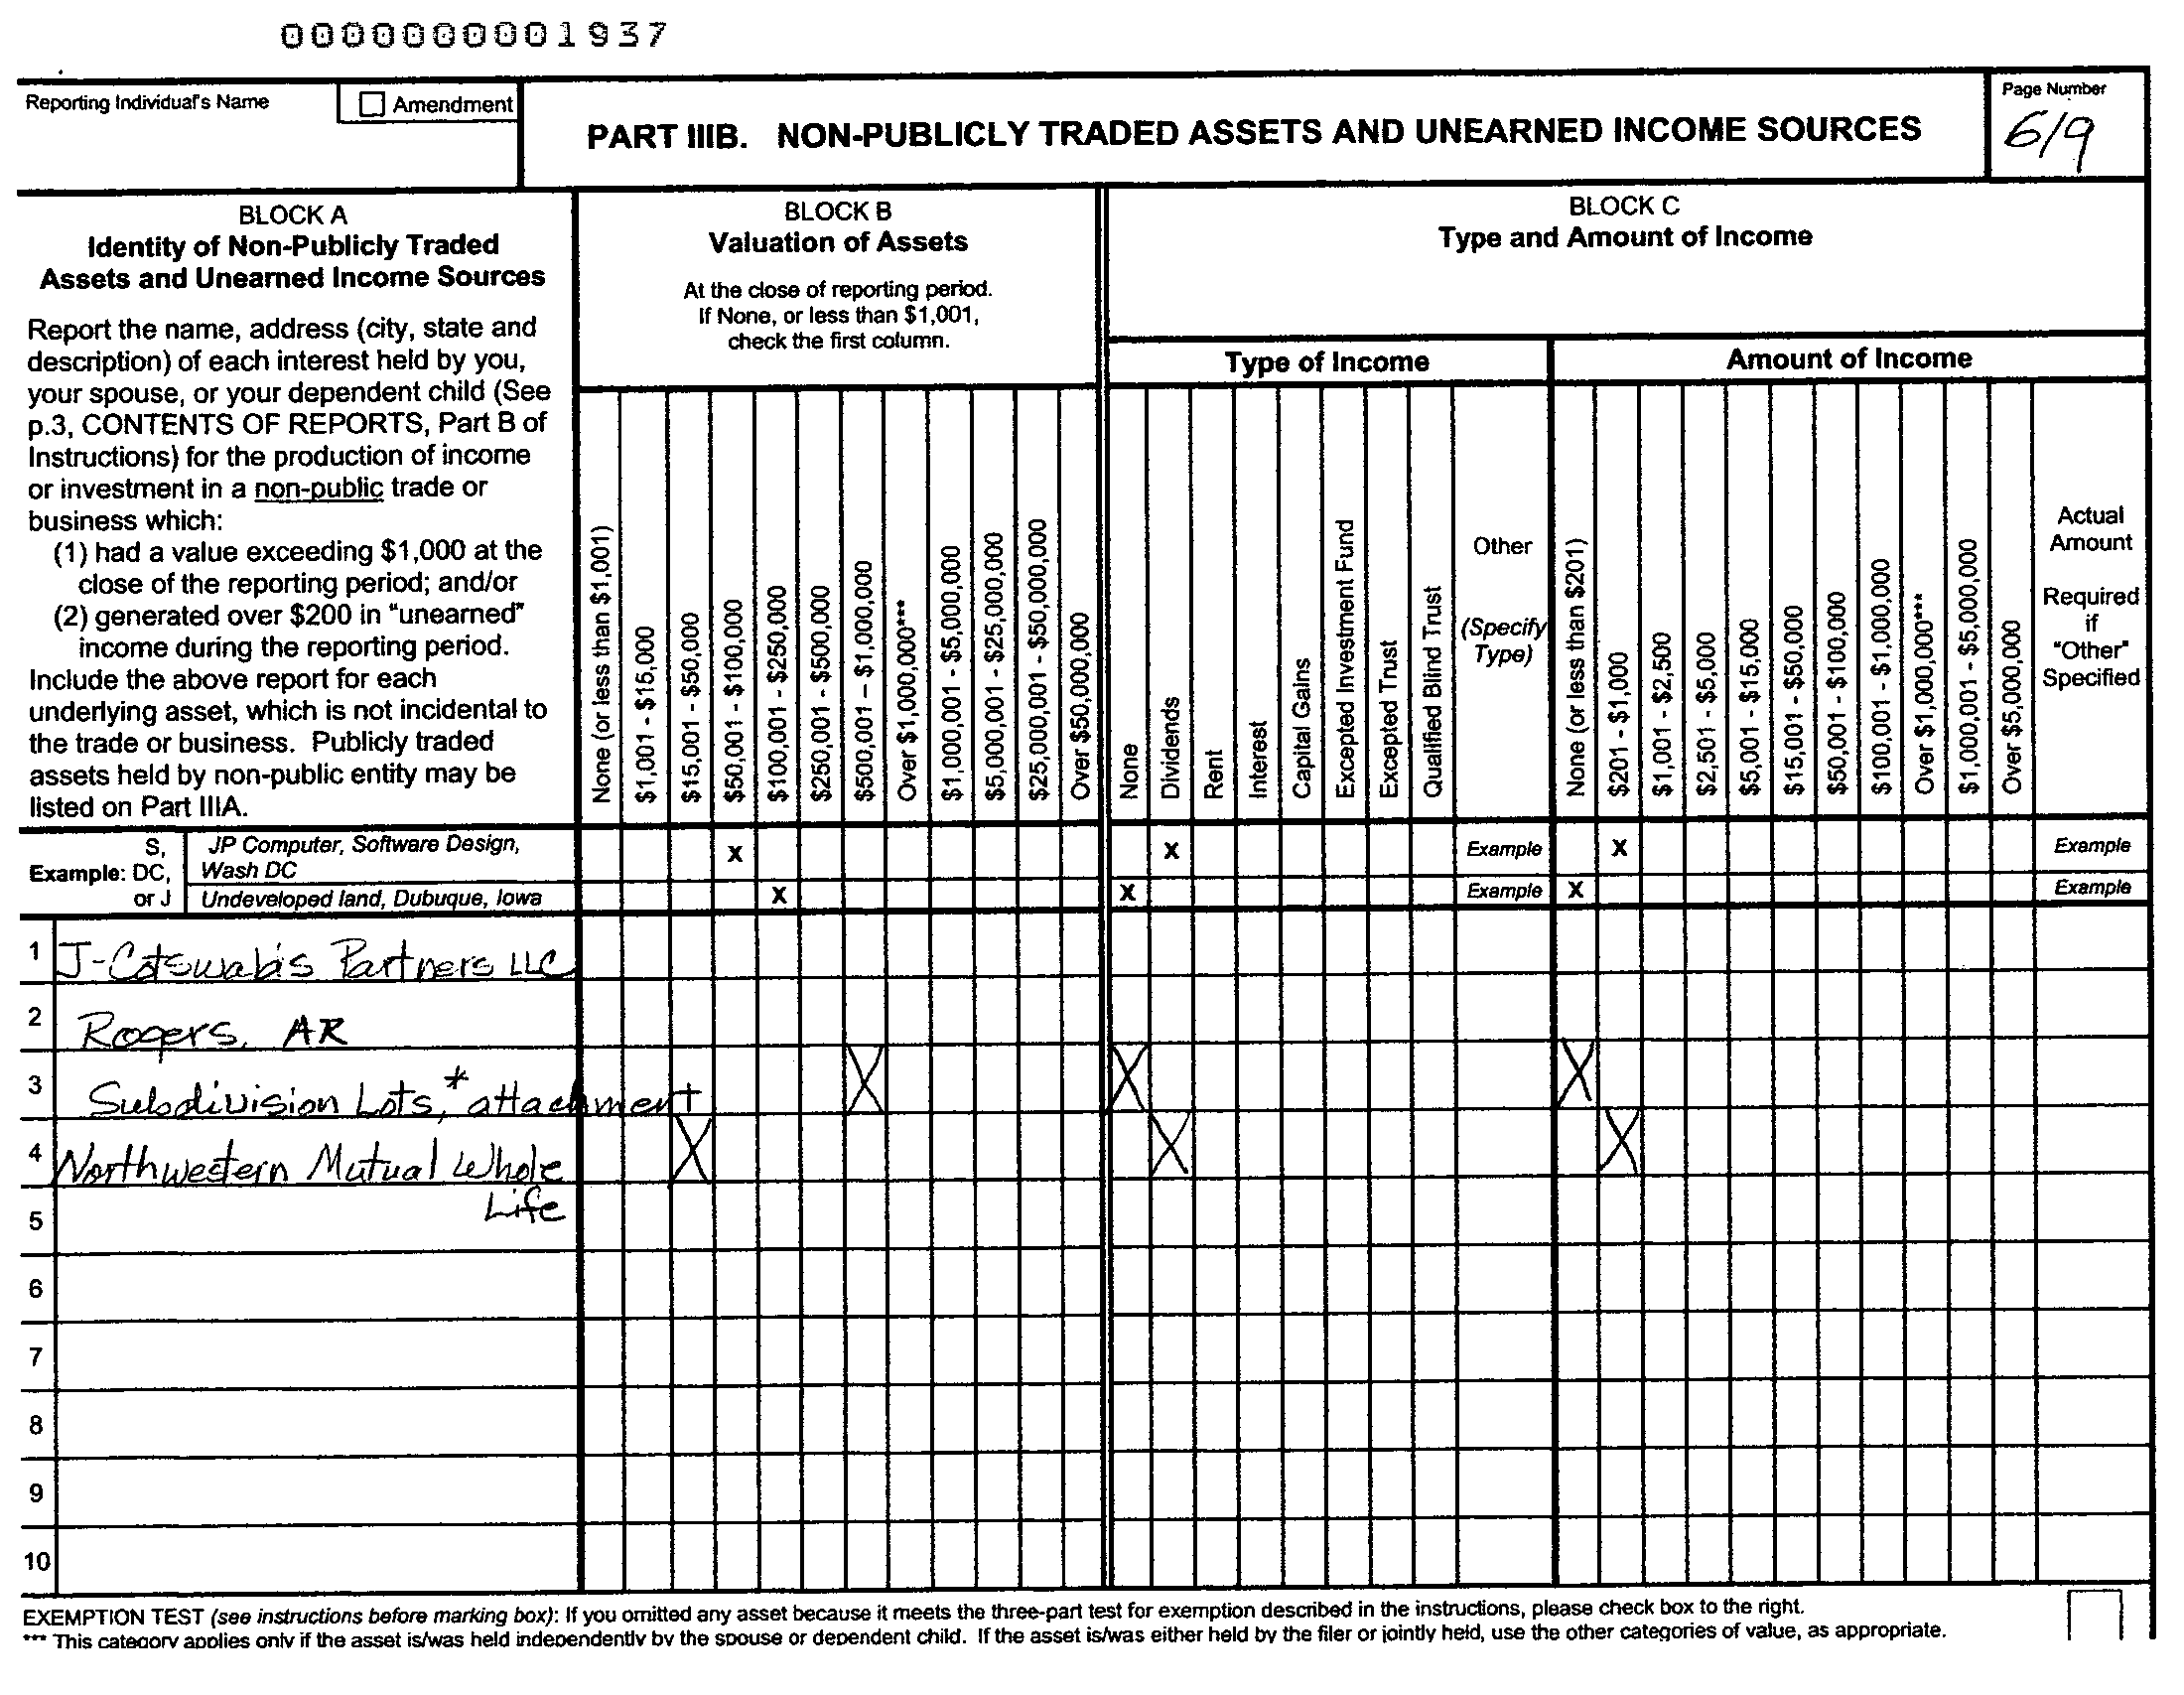 0000000001937
Reporting Individual's Name
Amendment
PART IIIB. NON-PUBLICLY TRADED ASSETS AND UNEARNED INCOME SOURCES
Page Number
6/9
BLOCK A
Identity of Non-Publicly Traded
Assets and Unearned Income Sources
Report the name, address (city, state and
description) of each interest held by you,
your spouse, or your dependent child (See
p.3, CONTENTS OF REPORTS, Part B of
Instructions) for the production of income
or investment in a non-public trade or
business which:
(1) had a value exceeding $1,000 at the
close of the reporting period; and/or
(2) generated over $200 in "unearned"
income during the reporting period.
Include the above report for each
underlying asset, which is not incidental to
the trade or business. Publicly traded
assets held by non-public entity may be
listed on Part IIIA.
BLOCK B
Valuation of Assets
At the close of reporting period.
If None, or less than $1,001,
check the first column.
None (or less than $1,001)
$1,001 - $15,000
$15,001 - $50,000
$50,001 - $100,000
$100,001 - $250,000
$250,001 - $500,000
$500,001 – $1,000,000
Over $1,000,000***
$1,000,001 - $5,000,000
$5,000,001 - $25,000,000
$25,000,001 - $50,000,000
Over $50,000,000
BLOCK C
Type and Amount of Income
Type of Income
None
Dividends
Rent
Interest
Capital Gains
Excepted Investment Fund
Excepted Trust
Qualified Blind Trust
Other
(Specify
Type)
Amount of Income
None (or less than $201)
$201 - $1,000
$1,001 - $2,500
$2,501 - $5,000
$5,001 - $15,000
$15,001 - $50,000
$50,001 - $100,000
$100,001 - $1,000,000
Over $1,000,000***
$1,000,001 - $5,000,000
Over $5,000,000
Actual
Amount
Required
if
"Other"
Specified
Example:
S,
DC,
or J
JP Computer, Software Design,
Wash DC
X X Example X Example
Undeveloped land, Dubuque, Iowa X X Example X Example
1 J-Cotswalds Partners LLC
2 Rogers, AR
3 Subdivision Lots,* attachment X X X
4 Northwestern Mutual Whole X X X
Life
5
6
7
8
9
10
EXEMPTION TEST (see instructions before marking box): If you omitted any asset because it meets the three-part test for exemption described in the instructions, please check box to the right.
*** This category applies only if the asset is/was held independently by the spouse or dependent child. If the asset is/was either held by the filer or jointly held, use the other categories of value, as appropriate.